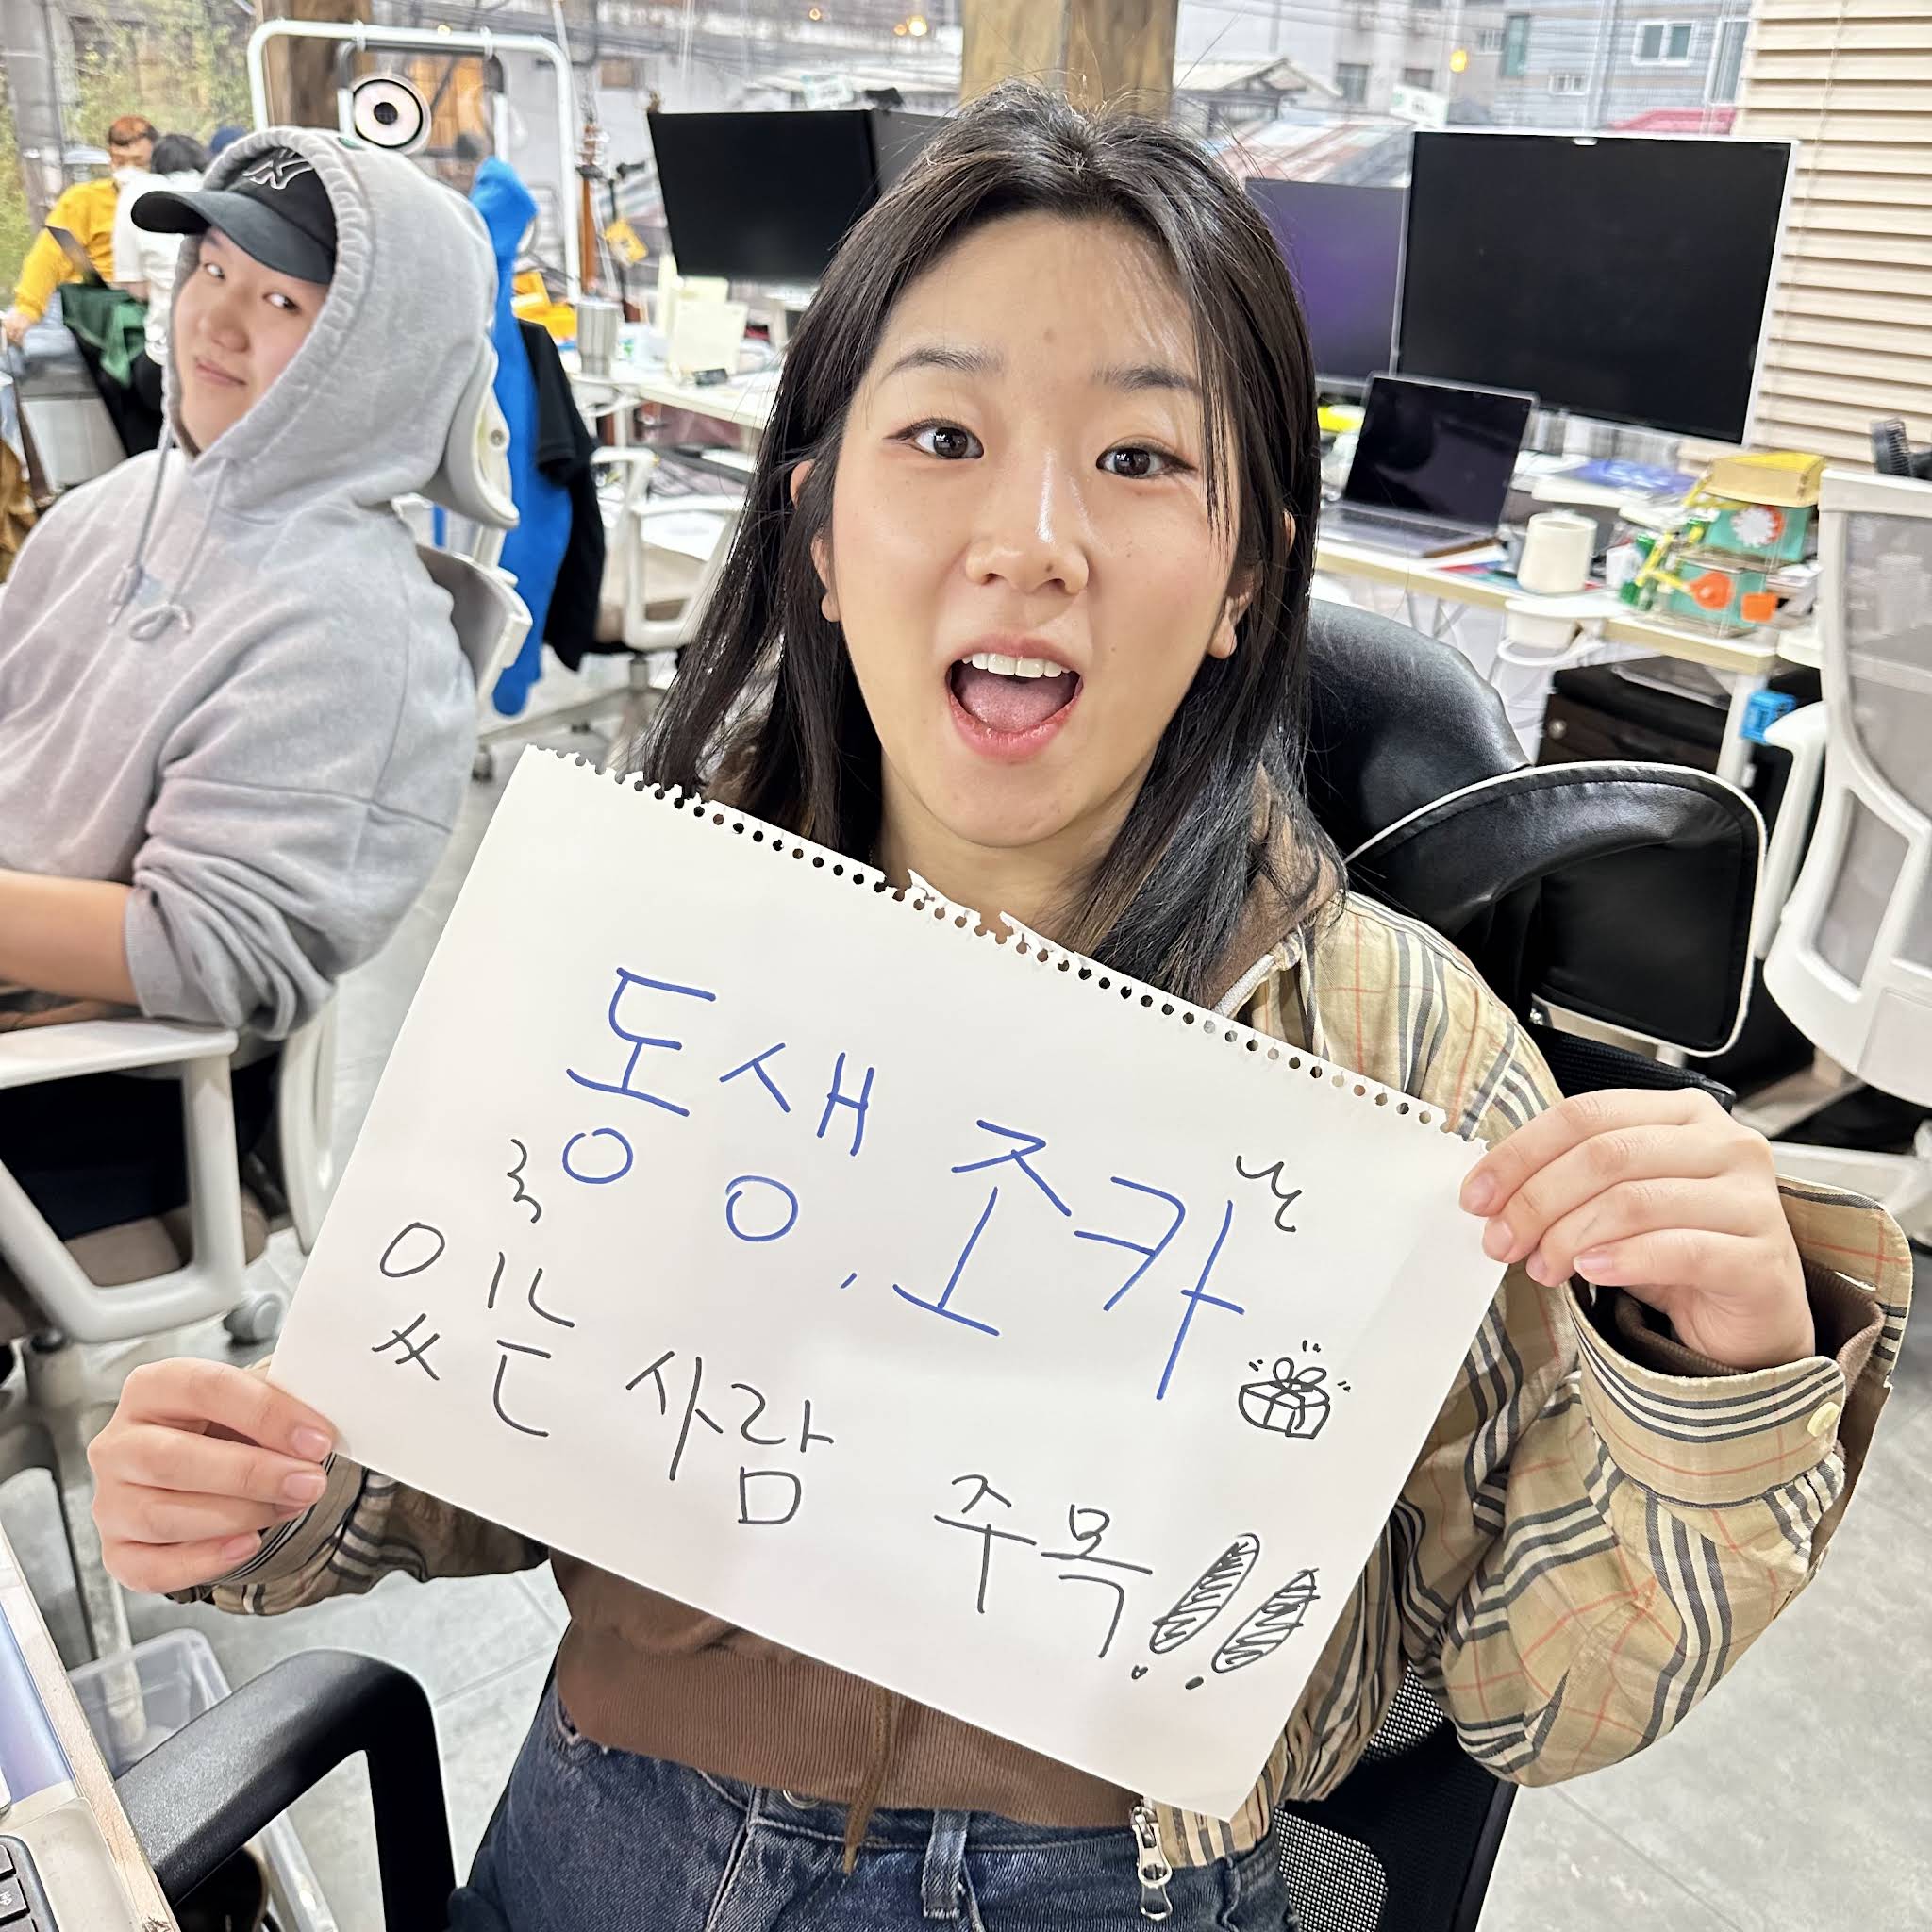 동생, 조카
있는 사람 주목!!
NY